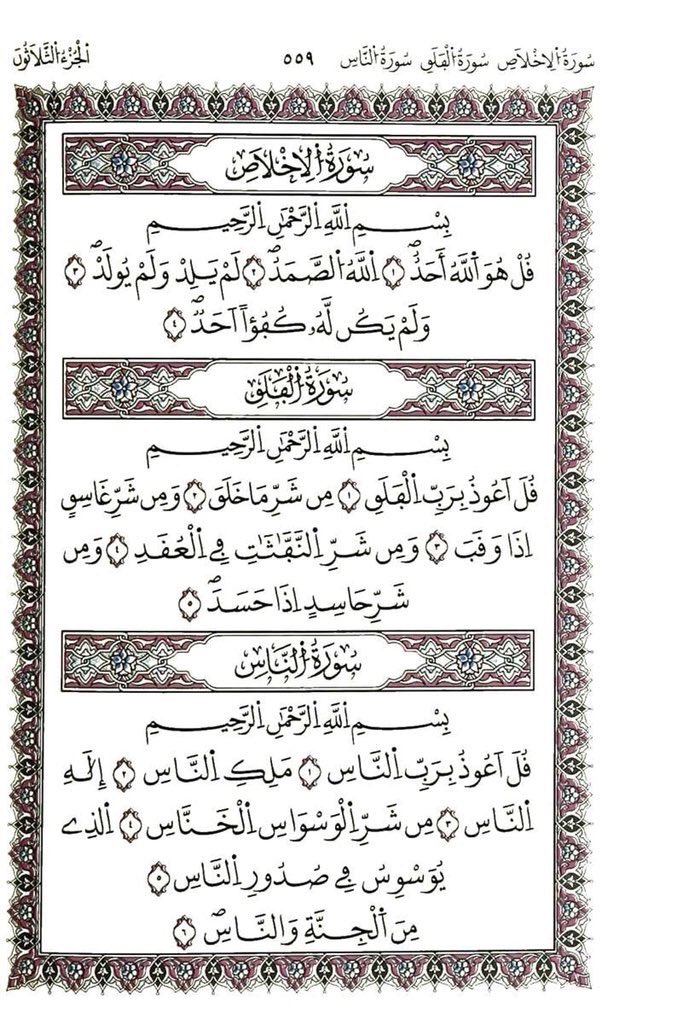 سُورَةُ الِاخْلَاصِ سُورَةُ الْفَلَقِ سُورَةُ النَّاسِ ٥٥٩ الْجُزْءُ الثَّلَاثُونَ
سُورَةُ الِاخْلَاصِ
بِسْمِ اللَّهِ الرَّحْمَٰنِ الرَّحِيمِ
قُلْ هُوَ اللَّهُ أَحَدٌۖ ١ اللَّهُ الصَّمَدُۖ ٢ لَمْ يَلِدْ وَلَمْ يُولَدْۖ ٣
وَلَمْ يَكُن لَّهُۥ كُفُؤاً اَحَدٌۖ ٤
سُورَةُ الْفَلَقِ
بِسْمِ اللَّهِ الرَّحْمَٰنِ الرَّحِيمِ
قُلَ اَعُوذُ بِرَبِّ الْفَلَقِ ١ مِن شَرِّ مَا خَلَقَ ٢ وَمِن شَرِّ غَاسِقٍ
اِذَا وَقَبَ ٣ وَمِن شَرِّ النَّفَّٰثَٰتِ فِي الْعُقَدِ ٤ وَمِن
شَرِّ حَاسِدٍ اِذَا حَسَدَۖ ٥
سُورَةُ النَّاسِ
بِسْمِ اللَّهِ الرَّحْمَٰنِ الرَّحِيمِ
قُلَ اَعُوذُ بِرَبِّ النَّاسِ ١ مَلِكِ النَّاسِ ٢ إِلَٰهِ
النَّاسِ ٣ مِن شَرِّ الْوَسْوَاسِ الْخَنَّاسِ ٤ الَّذِي
يُوَسْوِسُ فِي صُدُورِ النَّاسِ ٥
مِنَ الْجِنَّةِ وَالنَّاسِۖ ٦